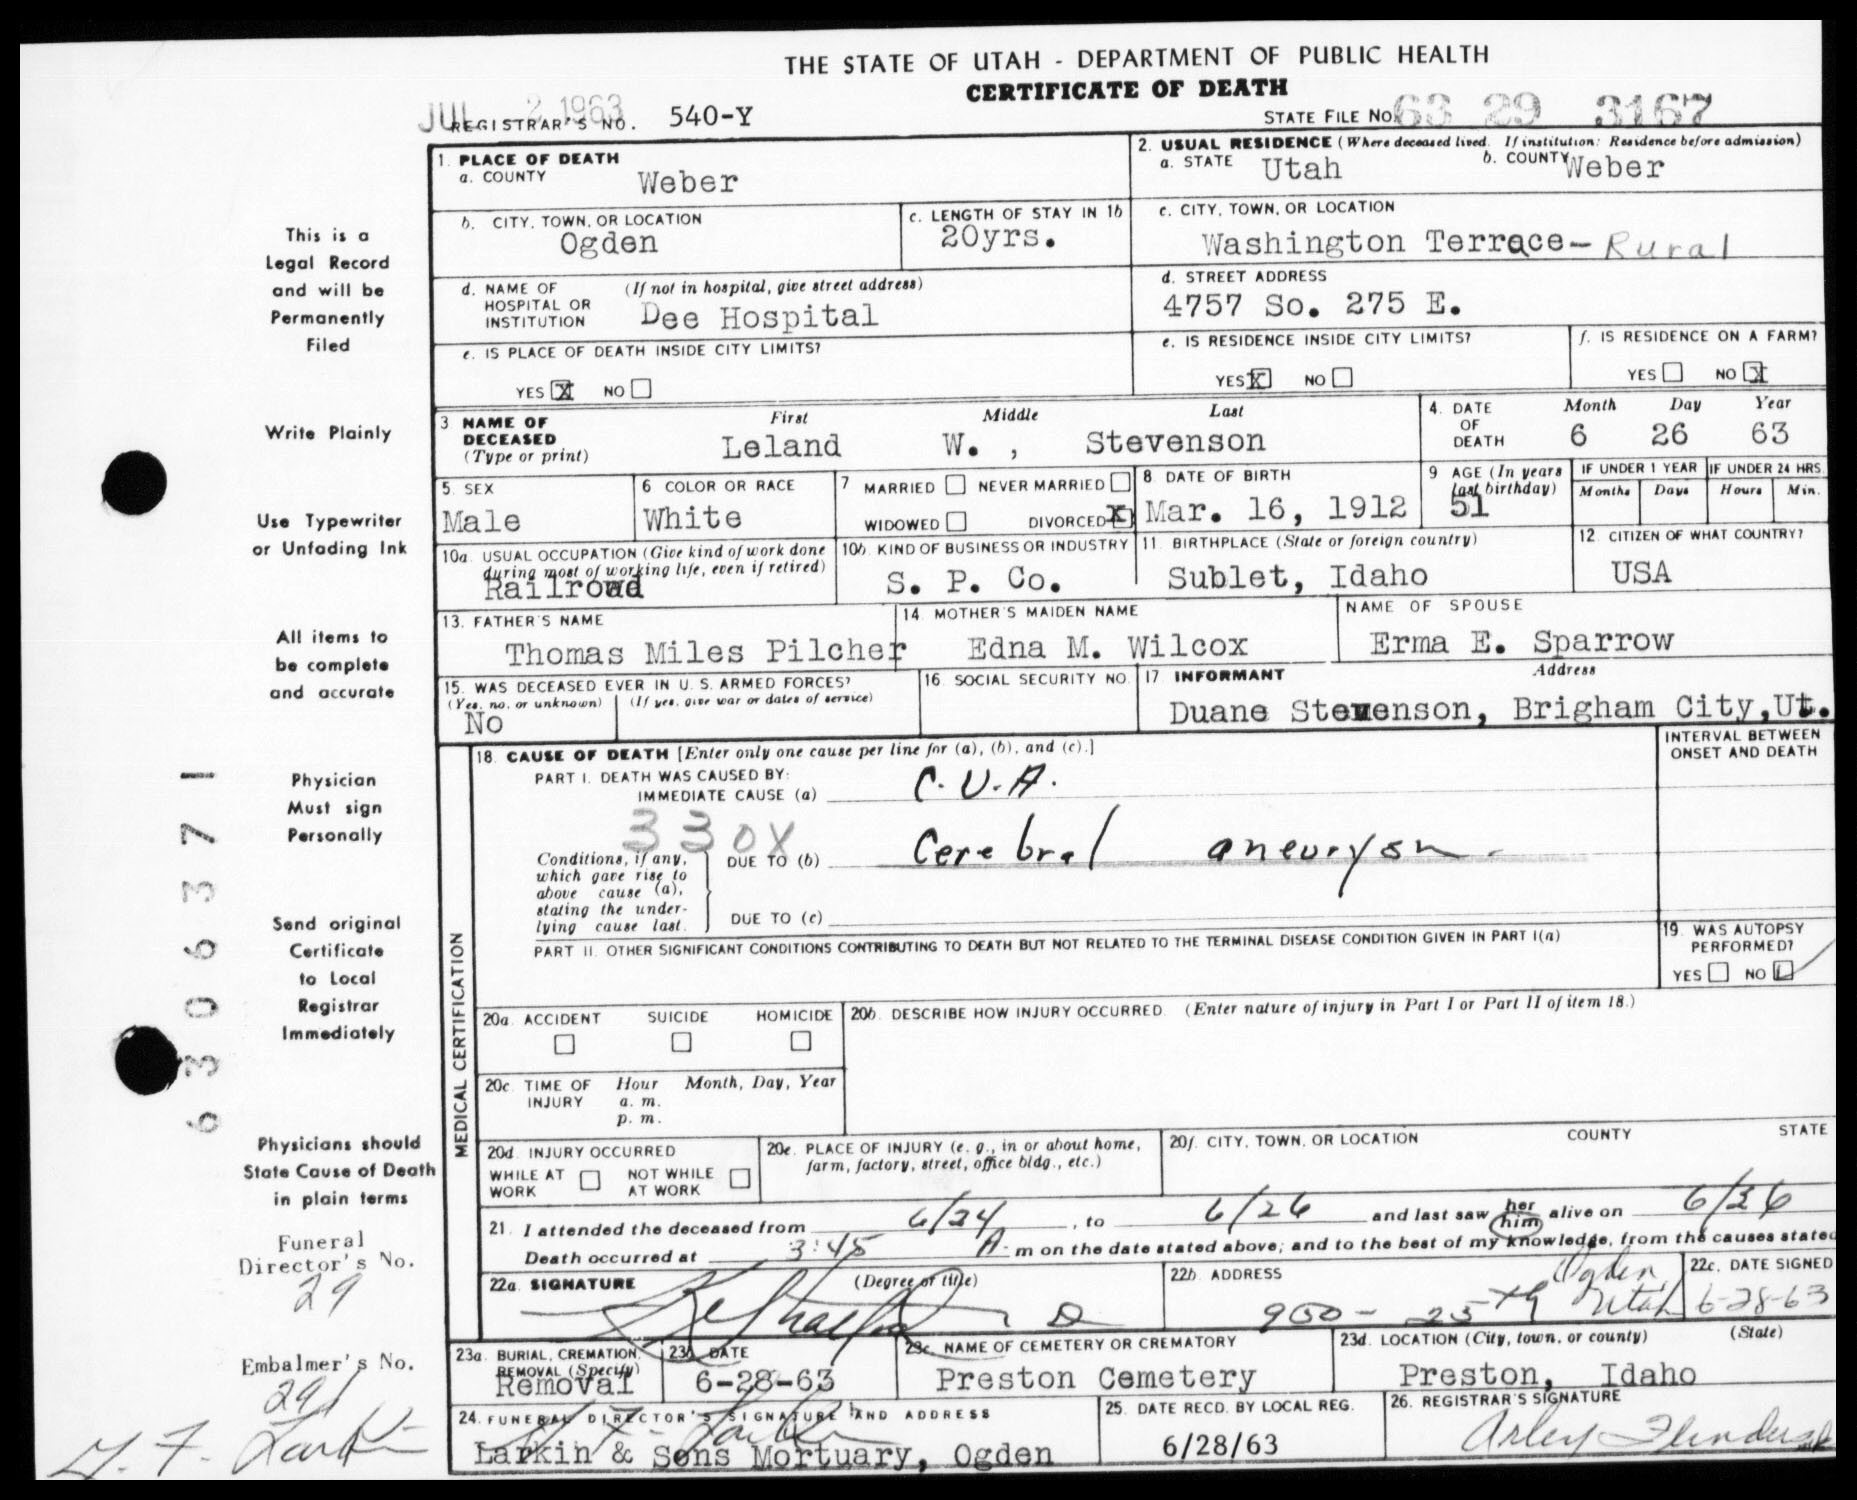 THE STATE OF UTAH - DEPARTMENT OF PUBLIC HEALTH
CERTIFICATE OF DEATH
JUL 2 1963
REGISTRAR'S NO. 540-Y
STATE FILE NO. 63 29 3167
This is a
Legal Record
and will be
Permanently
Filed
Write Plainly
Use Typewriter
or Unfading Ink
All items to
be complete
and accurate
Physician
Must sign
Personally
Send original
Certificate
to Local
Registrar
Immediately
Physicians should
State Cause of Death
in plain terms
Funeral
Director's No.
29
Embalmer's No.
291
G. F. Larkin
6306371
1. PLACE OF DEATH
a. COUNTY Weber
2. USUAL RESIDENCE (Where deceased lived. If institution: Residence before admission)
a. STATE Utah b. COUNTY Weber
b. CITY, TOWN, OR LOCATION
Ogden
c. LENGTH OF STAY IN 1b
20yrs.
c. CITY, TOWN, OR LOCATION
Washington Terrace- Rural
d. NAME OF HOSPITAL OR INSTITUTION (If not in hospital, give street address)
Dee Hospital
d. STREET ADDRESS
4757 So. 275 E.
e. IS PLACE OF DEATH INSIDE CITY LIMITS?
YES X NO
e. IS RESIDENCE INSIDE CITY LIMITS?
YES X NO
f. IS RESIDENCE ON A FARM?
YES NO X
3 NAME OF DECEASED (Type or print)
First Middle Last
Leland W. , Stevenson
4. DATE OF DEATH
Month Day Year
6 26 63
5. SEX
Male
6 COLOR OR RACE
White
7 MARRIED NEVER MARRIED
WIDOWED DIVORCED X
8 DATE OF BIRTH
Mar. 16, 1912
9 AGE (In years last birthday)
51
IF UNDER 1 YEAR
Months Days
IF UNDER 24 HRS.
Hours Min.
10a. USUAL OCCUPATION (Give kind of work done during most of working life, even if retired)
Railroad
10b. KIND OF BUSINESS OR INDUSTRY
S. P. Co.
11. BIRTHPLACE (State or foreign country)
Sublet, Idaho
12. CITIZEN OF WHAT COUNTRY?
USA
13. FATHER'S NAME
Thomas Miles Pilcher
14. MOTHER'S MAIDEN NAME
Edna M. Wilcox
NAME OF SPOUSE
Erma E. Sparrow
15. WAS DECEASED EVER IN U. S. ARMED FORCES?
(Yes, no, or unknown) (If yes, give war or dates of service)
No
16. SOCIAL SECURITY NO.
17. INFORMANT Address
Duane Stevenson, Brigham City,Ut.
MEDICAL CERTIFICATION
18. CAUSE OF DEATH [Enter only one cause per line for (a), (b), and (c).]
INTERVAL BETWEEN ONSET AND DEATH
PART I. DEATH WAS CAUSED BY:
IMMEDIATE CAUSE (a) C.V.A.
330X
Conditions, if any, which gave rise to above cause (a), stating the underlying cause last.
DUE TO (b) Cerebral aneurysm.
DUE TO (c)
PART II. OTHER SIGNIFICANT CONDITIONS CONTRIBUTING TO DEATH BUT NOT RELATED TO THE TERMINAL DISEASE CONDITION GIVEN IN PART I(a)
19. WAS AUTOPSY PERFORMED?
YES NO
20a. ACCIDENT SUICIDE HOMICIDE
20b. DESCRIBE HOW INJURY OCCURRED. (Enter nature of injury in Part I or Part II of item 18.)
20c. TIME OF INJURY Hour Month, Day, Year
a. m.
p. m.
20d. INJURY OCCURRED
WHILE AT WORK NOT WHILE AT WORK
20e. PLACE OF INJURY (e. g., in or about home, farm, factory, street, office bldg., etc.)
20f. CITY, TOWN, OR LOCATION COUNTY STATE
21. I attended the deceased from 6/24 , to 6/26 and last saw her him alive on 6/26
Death occurred at 3:45 A. m on the date stated above; and to the best of my knowledge, from the causes stated
22a. SIGNATURE (Degree or title)
22b. ADDRESS
950 - 25th Ogden Utah
22c. DATE SIGNED
6-28-63
23a. BURIAL, CREMATION, REMOVAL (Specify)
Removal
23b. DATE
6-28-63
23c. NAME OF CEMETERY OR CREMATORY
Preston Cemetery
23d. LOCATION (City, town, or county) (State)
Preston, Idaho
24. FUNERAL DIRECTOR'S SIGNATURE AND ADDRESS
G. F. Larkin
Larkin & Sons Mortuary, Ogden
25. DATE RECD. BY LOCAL REG.
6/28/63
26. REGISTRAR'S SIGNATURE
Arley Flinders